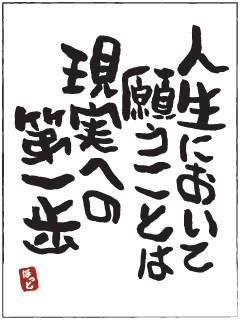 人生において
願うことは
現実への
第一歩
ほっと